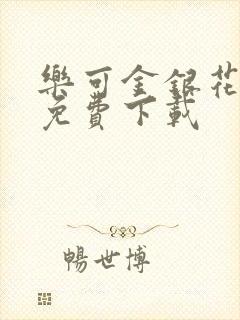 樂可金銀花
免費下載
暢世博